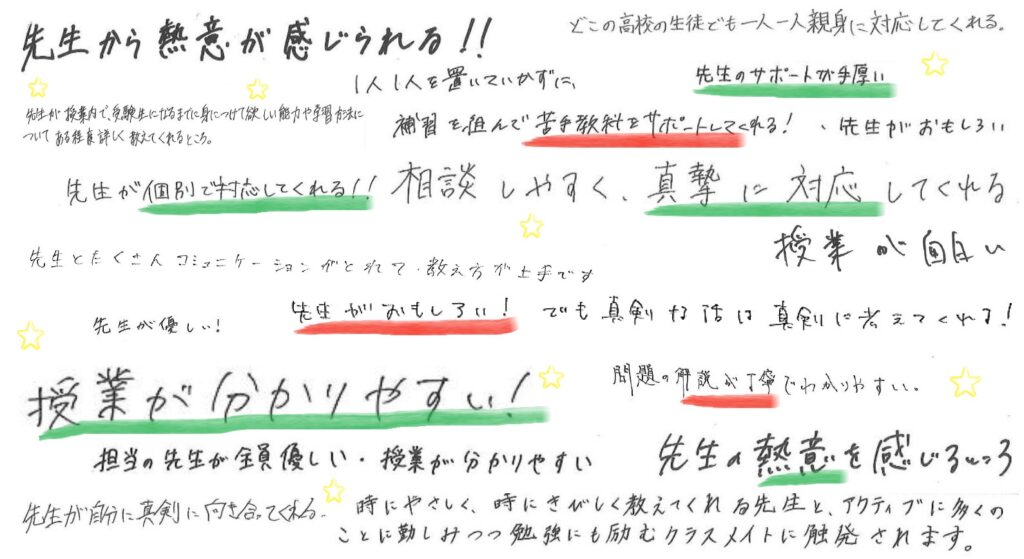 先生から熱意が感じられる!!
どこの高校の生徒でも一人一人親身に対応してくれる。
1人1人を置いていかずに、
先生のサポートが手厚い
先生が授業内で、受験生になるまでに身につけて欲しい能力や学習方法に
ついてある程度詳しく教えてくれるところ。
補習を組んで苦手教科をサポートしてくれる!
・先生がおもしろい
先生が個別で対応してくれる!!
相談しやすく、真摯に対応してくれる
授業が面白い
先生とたくさんコミュニケーションがとれて、教え方が上手です
先生が優しい!
先生がおもしろい!でも真剣な話は真剣に考えてくれる!
授業が分かりやすい!
問題の解説が丁寧でわかりやすい。
担当の先生が全員優しい・授業が分かりやすい
先生の熱意を感じるところ
先生が自分に真剣に向き合ってくれる。
時にやさしく、時にきびしく教えてくれる先生と、アクティブに多くの
ことに勤しみつつ勉強にも励むクラスメイトに触発されます。